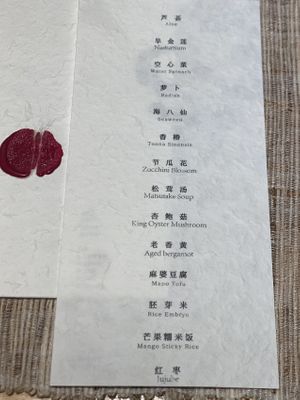 芦荟
Aloe
旱金莲
Nasturtium
空心菜
Water Spinach
萝卜
Radish
海八仙
Seaweeds
香椿
Toona Sinensis
节瓜花
Zucchini Blossom
松茸汤
Matsutake Soup
杏鲍菇
King Oyster Mushroom
老香黄
Aged bergamot
麻婆豆腐
Mapo Tofu
胚芽米
Rice Embryo
芒果糯米饭
Mango Sticky Rice
红枣
Jujube